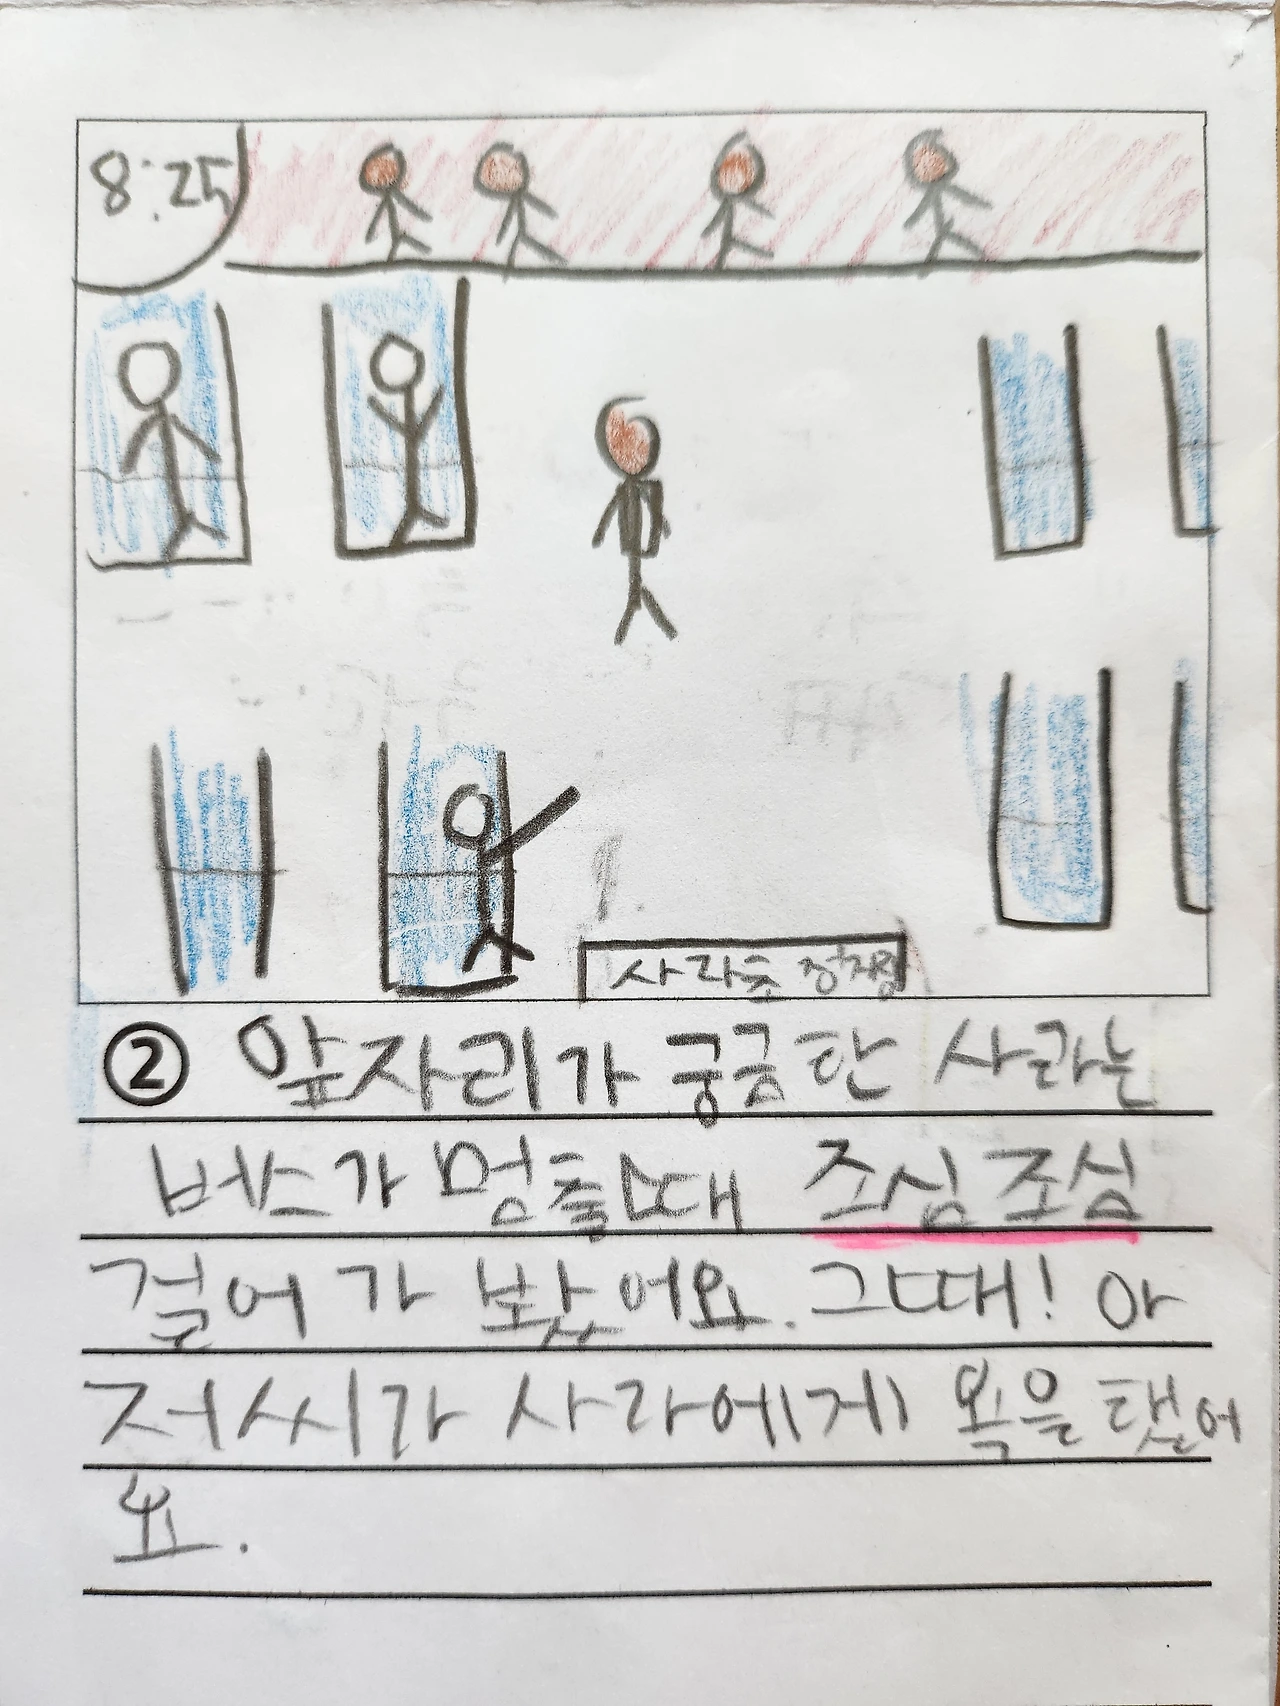 8:25
사라쵸 정지펑
② 앞자리가 궁금한 사라는
버스가 멈출때 조심조심
걸어가 봤어요. 그때! 아
저씨가 사라에게 욕을 했어
요.